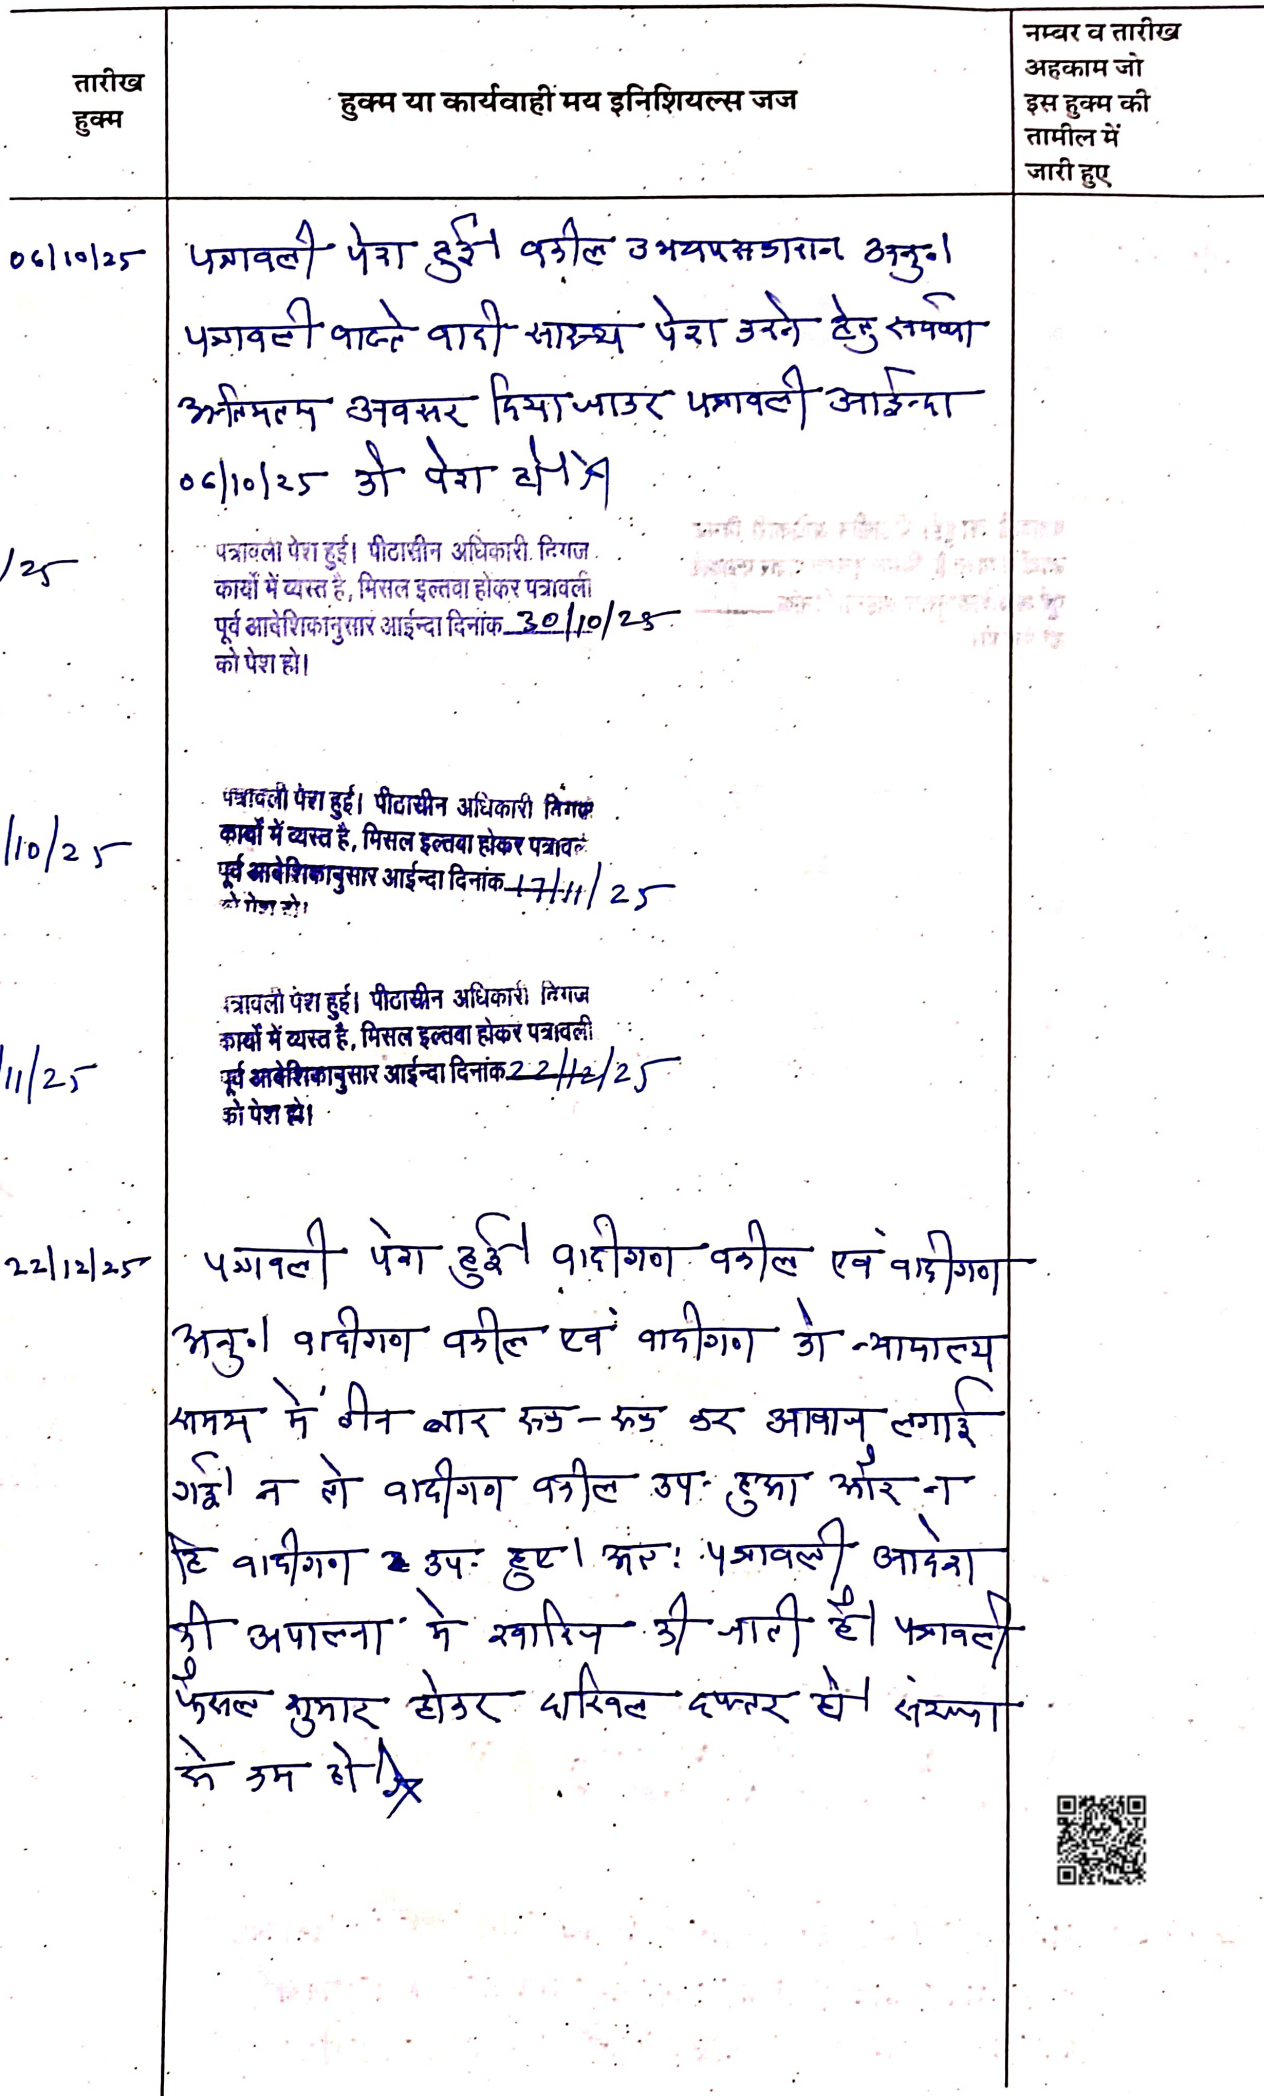 तारीख
हुक्म
हुक्म या कार्यवाही मय इनिशियल्स जज
नम्बर व तारीख
अहकाम जो
इस हुक्म की
तामील में
जारी हुए
06/10/25
पत्रावली पेश हुई। वकील उभयपक्षकारान अनु०।
पत्रावली वास्ते वादी साक्ष्य पेश करने हेतु
अन्तिमतम अवसर दिया जाकर पत्रावली आईन्दा
06/10/25 को पेश हो।
/25
पत्रावली पेश हुई। पीठासीन अधिकारी निगज
कार्यो में व्यस्त है, मिसल इल्तवा होकर पत्रावली
पूर्व आदेशिकानुसार आईन्दा दिनांक 30/10/25
को पेश हो।
/10/25
पत्रावली पेश हुई। पीठासीन अधिकारी निगज
कार्यो में व्यस्त है, मिसल इल्तवा होकर पत्रावल
पूर्व आदेशिकानुसार आईन्दा दिनांक 17/11/25
को पेश हो।
11/25
त्रावली पेश हुई। पीठासीन अधिकारी निगज
कार्यो में व्यस्त है, मिसल इल्तवा होकर पत्रावली
पूर्व आदेशिकानुसार आईन्दा दिनांक 22/12/25
को पेश हो।
22/12/25
पत्रावली पेश हुई। वादीगण वकील एवं वादीगण
अनु०। वादीगण वकील एवं वादीगण को न्यायालय
समय में तीन बार रूक-रूक कर आवाज लगाई
गई। न तो वादीगण वकील उप० हुआ और न
हि वादीगण उप० हुए। अतः पत्रावली आदेश
की अपालना में खारिज की जाती है। पत्रावली
फैसल शुमार होकर दाखिल दफ्तर हो। संख्या
से कम हो।